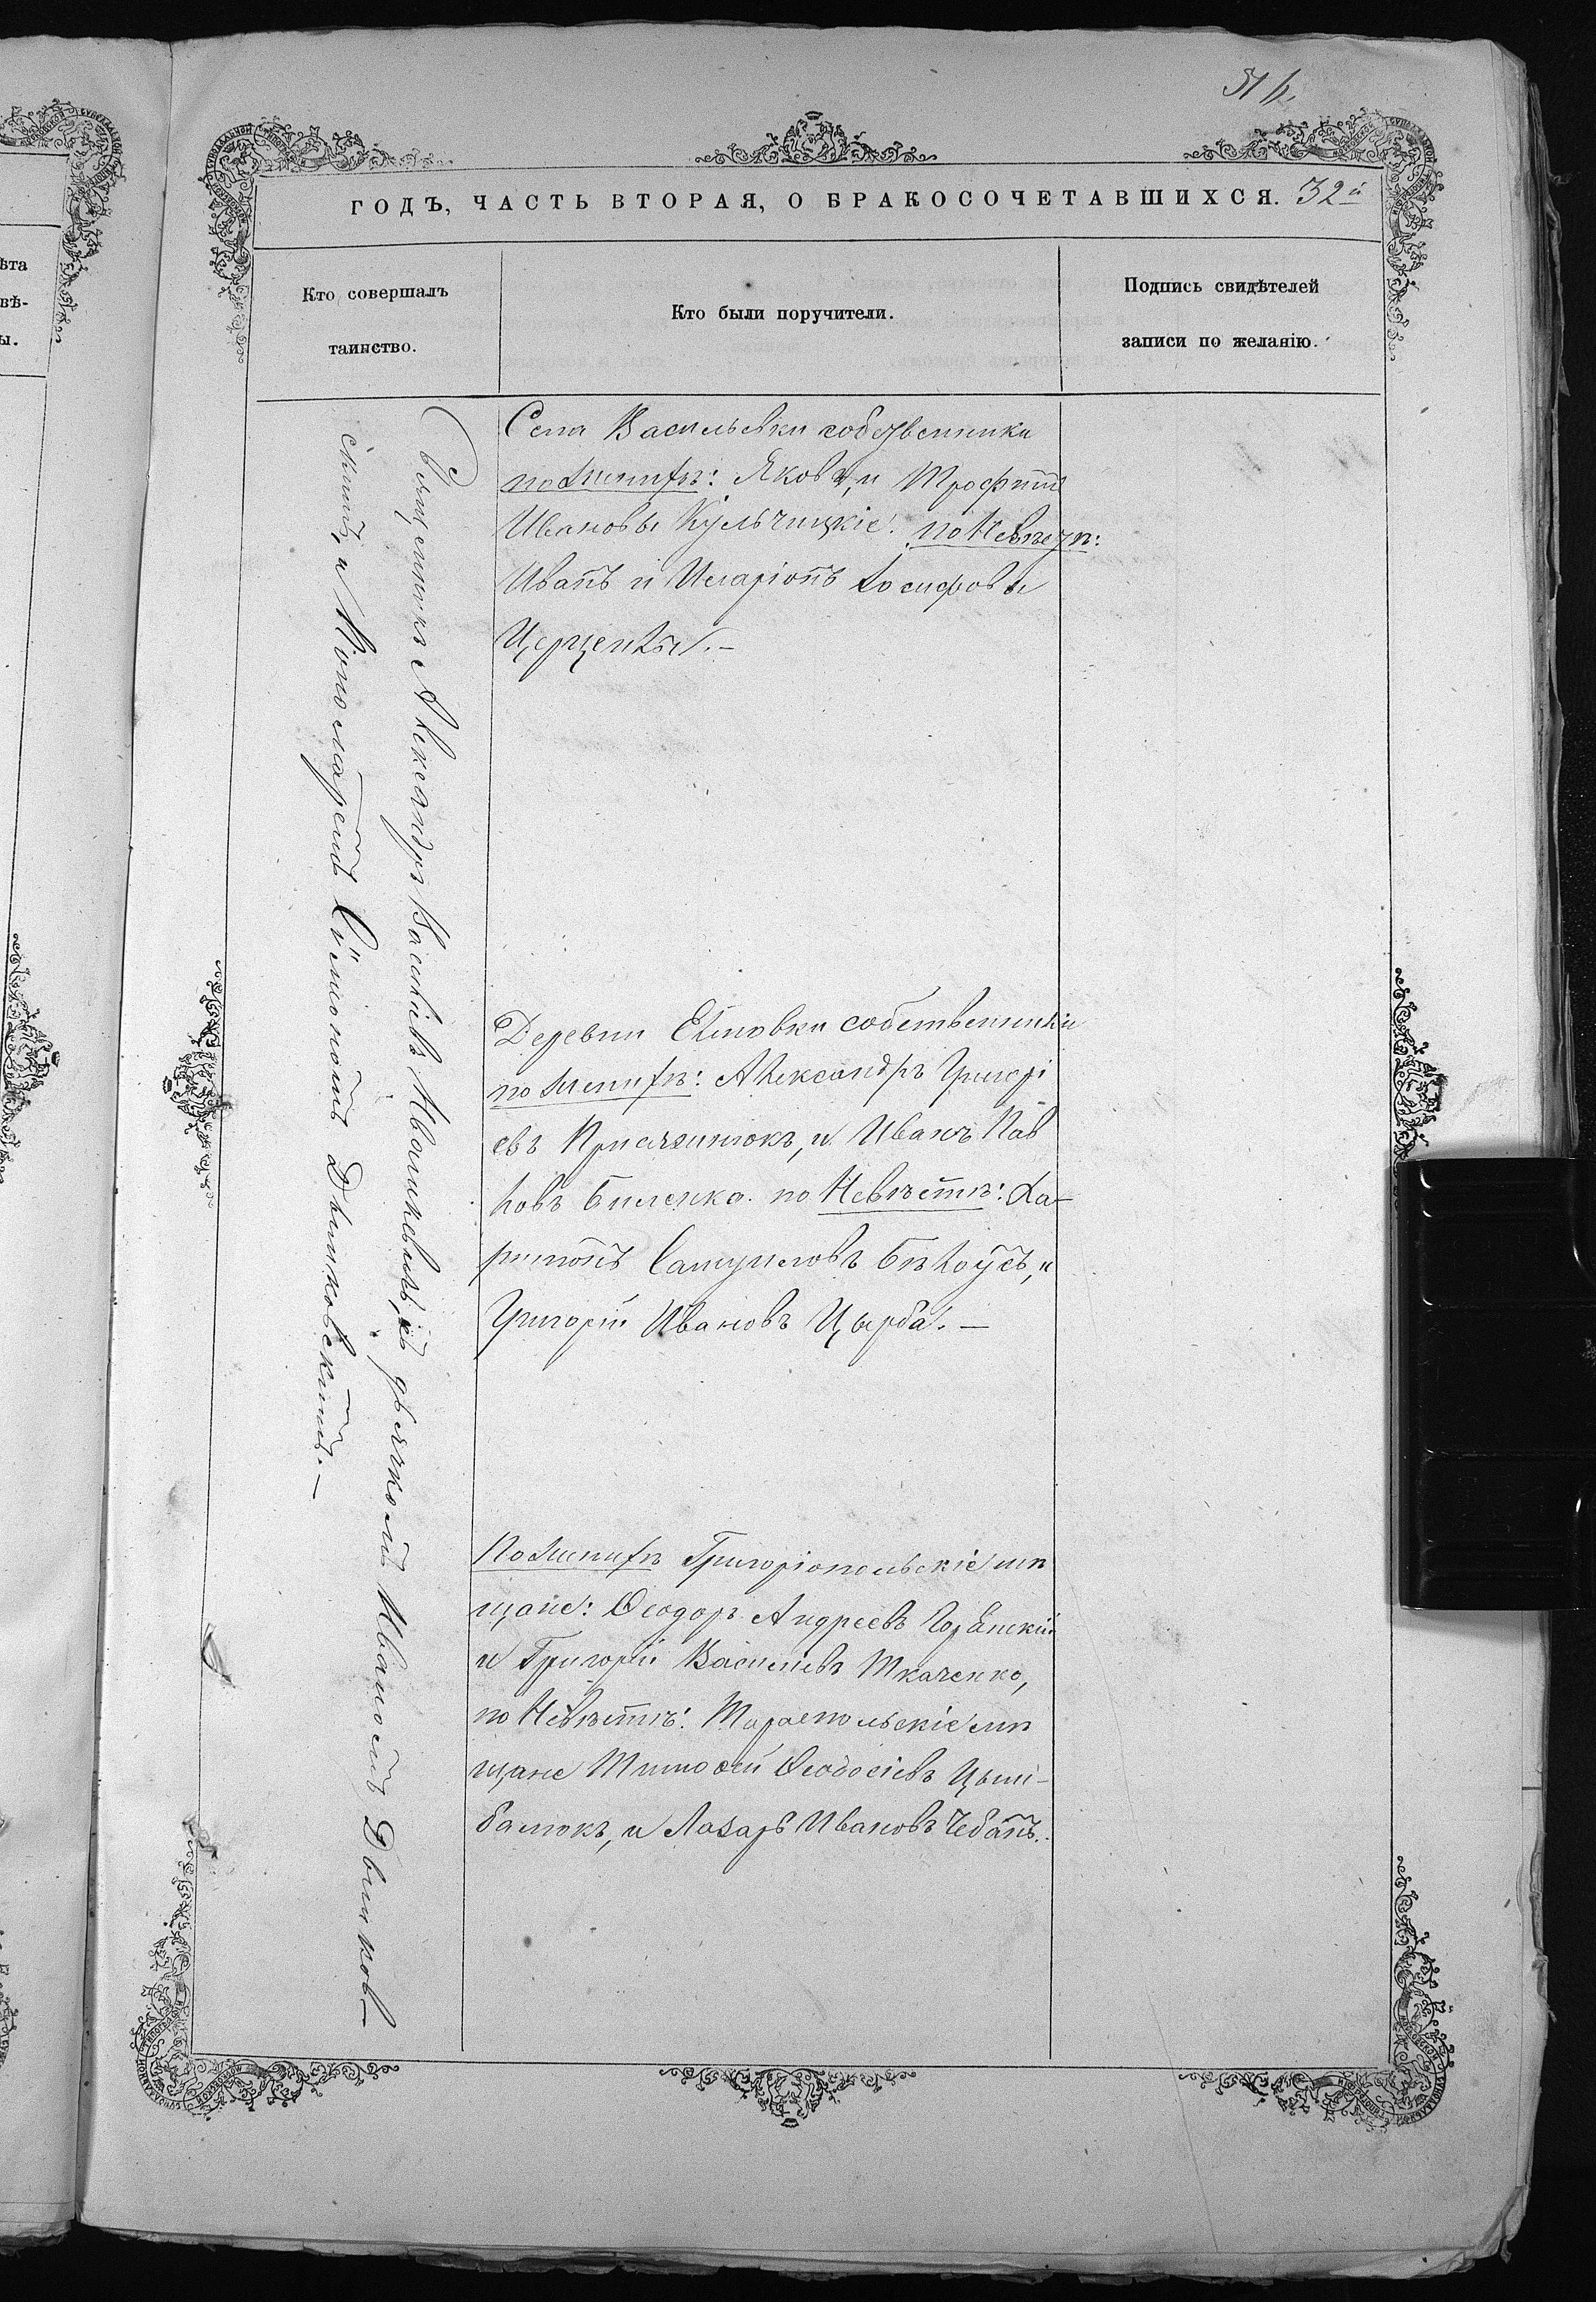 ГОДЪ, ЧАСТЬ ВТОРАЯ, О БРАКОСОЧЕТАВШИХСЯ. 32й
Кто совершалъ
таинство.
Кто были поручители.
Подпись свидѣтелей
записи по желанію.
Священникъ Александръ Василіевъ съ дьячкомъ Иваномъ Двинков-
скимъ, и Пономаремъ Сѵмеономъ Двинковскимъ.—
Села Васильевки собственники
по женихѣ: Яковъ, и Трофимъ
Ивановы Кульчицкіе. по Невѣстѣ:
Иванъ и Иларіонъ Іосифовы
Деревни собственники
по женихѣ: Александръ Григорі
евъ Присяжнюкъ, и Иванъ Пав
ловъ Биленко. по Невѣстѣ: Ха-
ритонъ Самуиловъ Бѣлоусъ, и
Григорій Ивановъ Цырба.—
По женихѣ Григоріопольскіе мѣ
щане: Ѳеодоръ Андреевъ
и Григорій Васильевъ Ткаченко,
по Невѣстѣ: Тираспольскіе мѣ
щане Тимоѳей Ѳеодосіевъ Цым-
балюкъ, и Лазарь Ивановъ Чебанъ.
ѣта
вѣ-
ы.